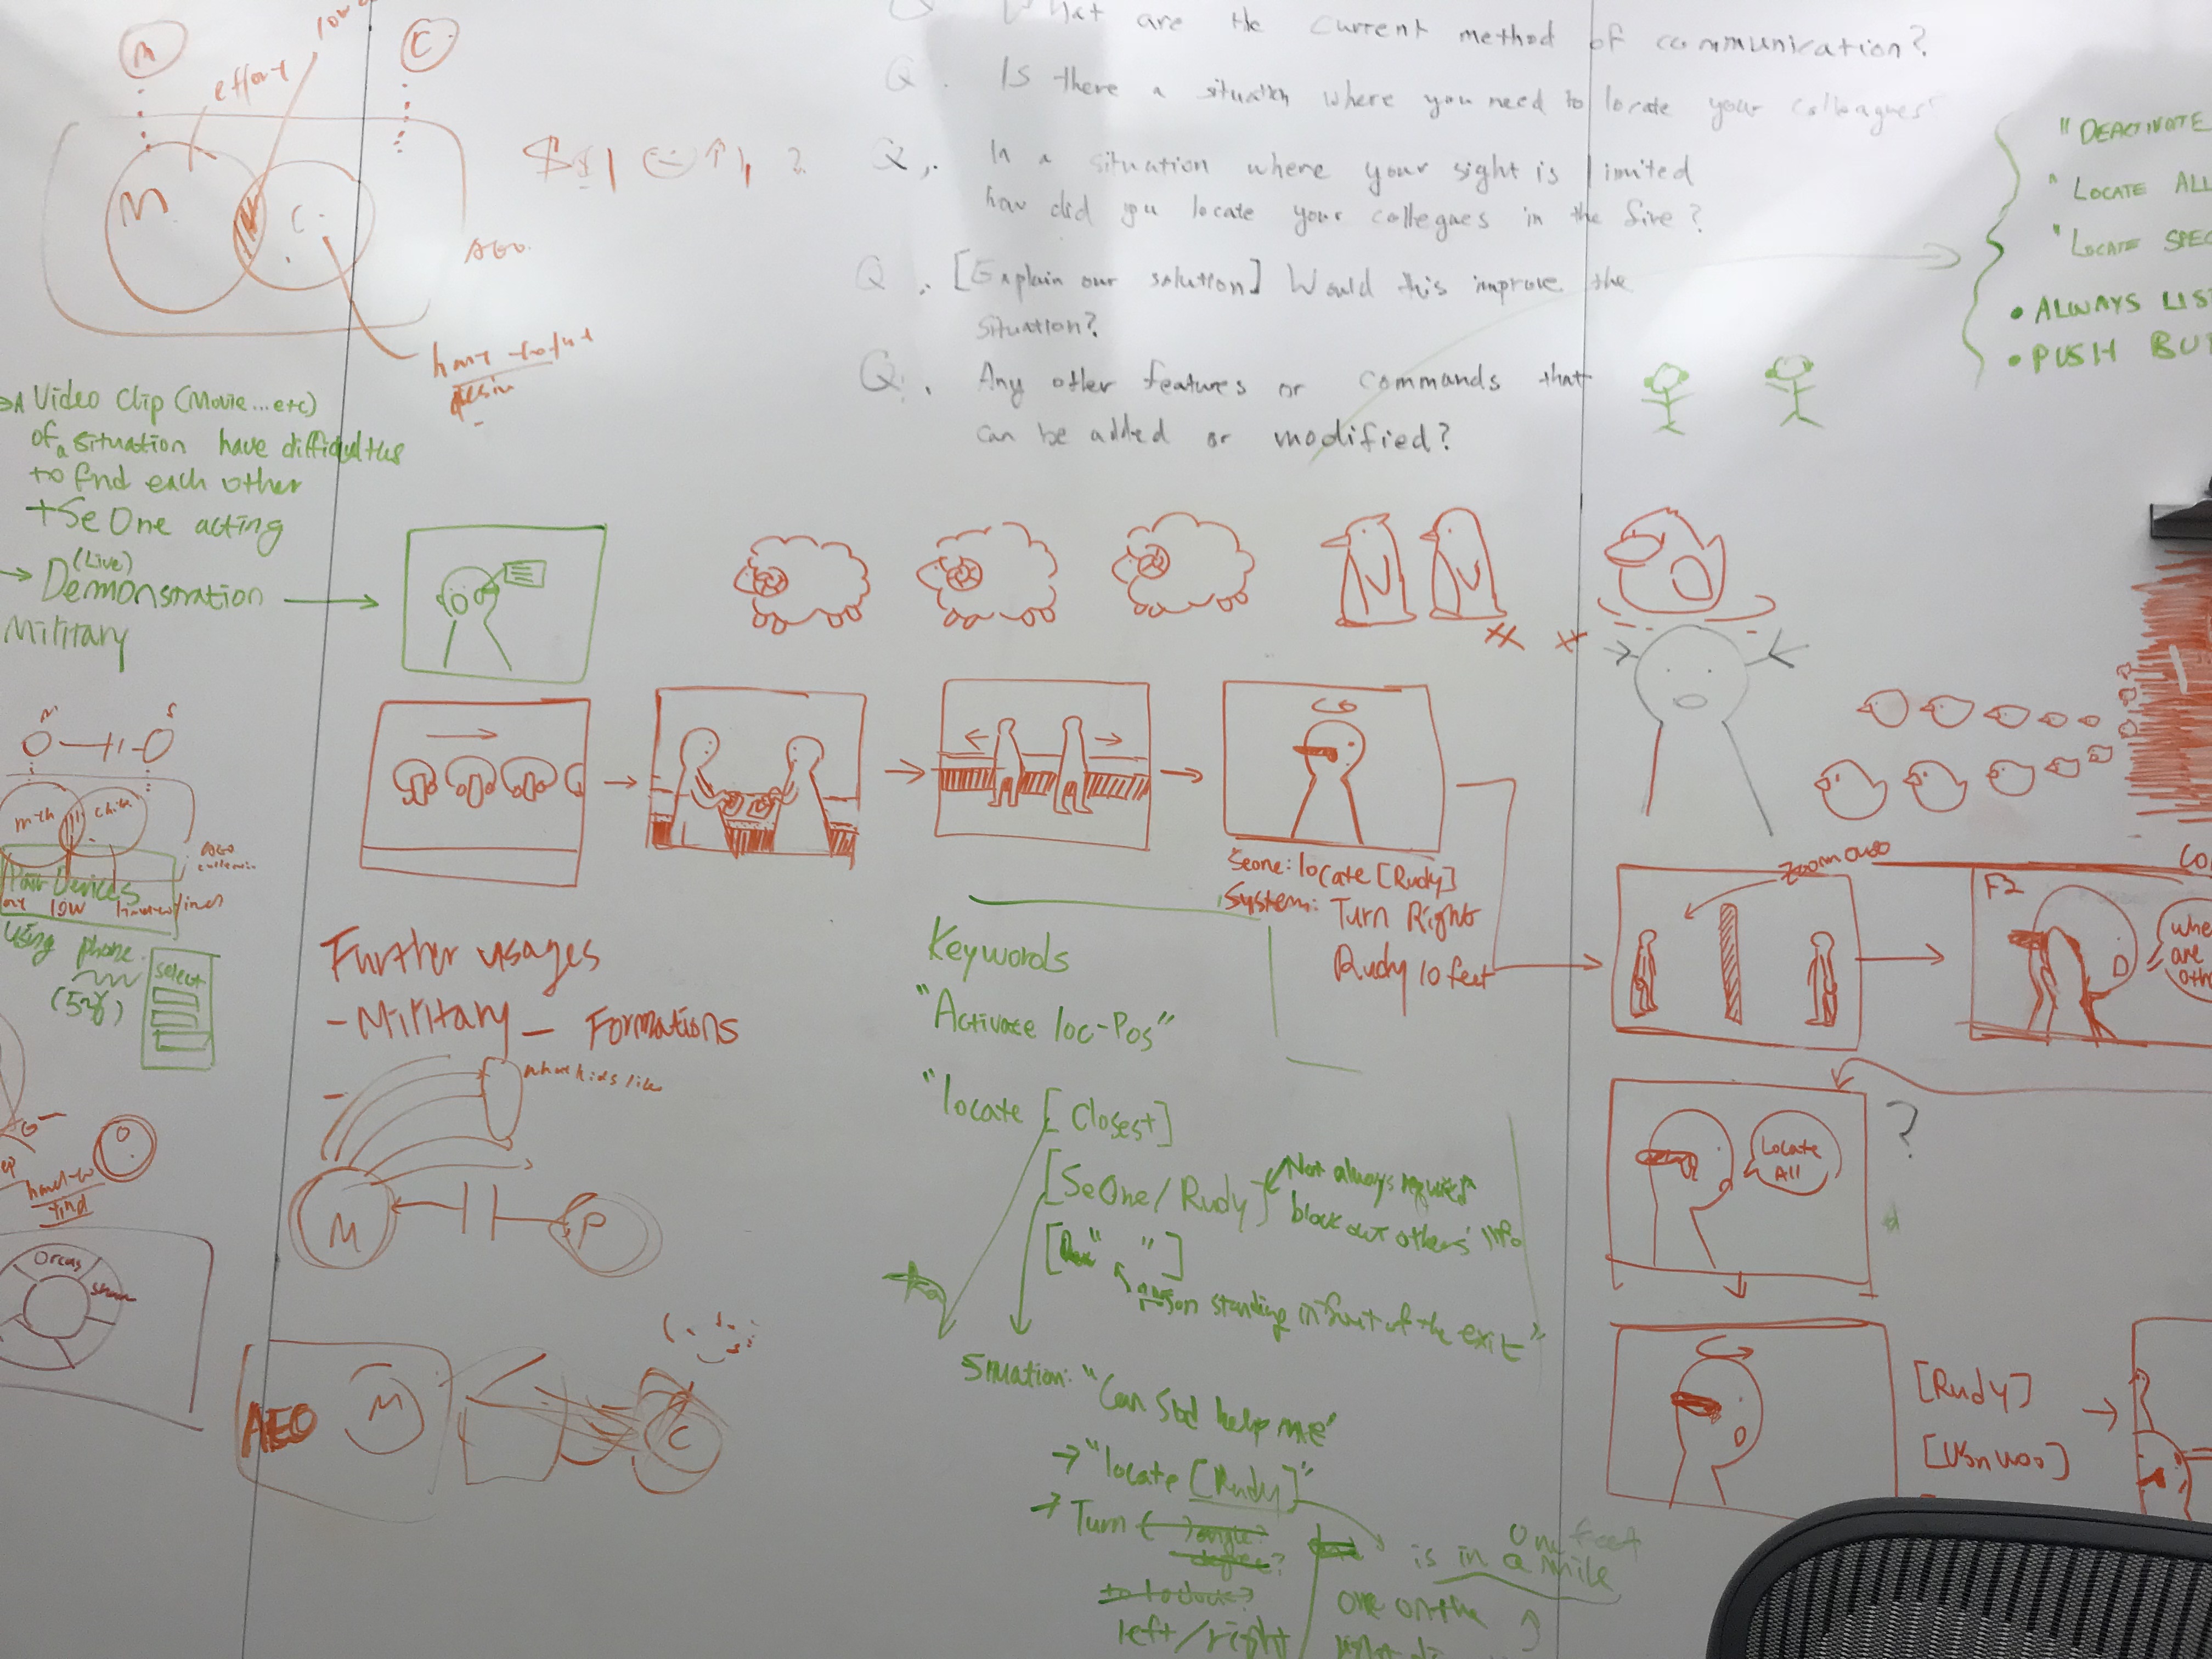 M
C
effort
low
M
C
AGO.
What are the current method of communication?
Q. Is there a situation where you need to locate your colleagues?
Q. In a situation where your sight is limited
how did you locate your collegues in the fire?
Q. [Explain our solution] Would this improve the
situation?
Q. Any other features or commands that
can be added or modified?
"DEACTIVATE
"LOCATE ALL
"LOCATE SPEC
• ALWAYS LIST
• PUSH BUT
→A Video Clip (Movie...etc)
of a situation have difficulties
to find each other
+SeOne acting
→ (Live)
Demonstration
Military
Pair Devices
low
using phone.
select
Seone: locate [Rudy]
System: Turn Right
Rudy 10 feet
zoom out
F2
whe
are
oth
Locate
All
?
[Rudy]
[Wonwoo]
Further usages
- Military - Formations
what kids like
M
P
hard-to
find
Orcas
AEO
M
C
Keywords
"Activate loc-Pos"
"locate [Closest]
[SeOne/Rudy]
Not always required
block out others' info
[" "]
person standing in front of the exit"
Situation: "Can Sbd help me"
→ "locate [Rudy]"
→ Turn ( ) angle?
degree?
left/right
One feet
is in a mile
one on the